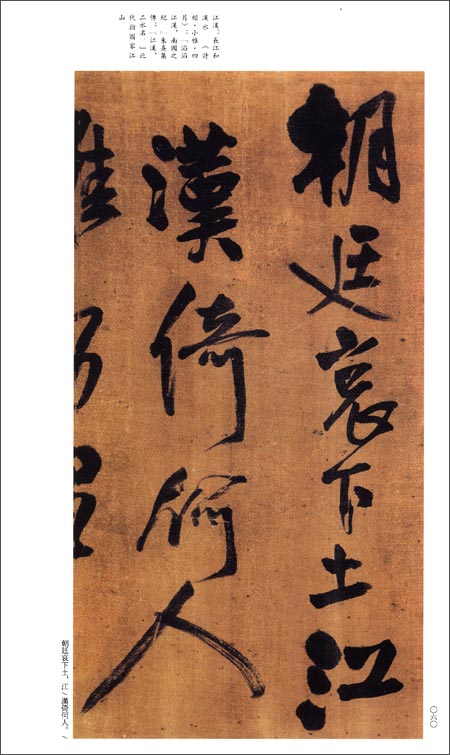 江漢：長江和
漢水。《詩
經·小雅·四
月》：「滔滔
江漢，南國之
紀。」朱熹集
傳：「江漢，
二水名。」此
代指國家江
山
朝廷哀下土江
漢倚何人
朝廷哀下土，江/漢倚何人。/
〇六〇